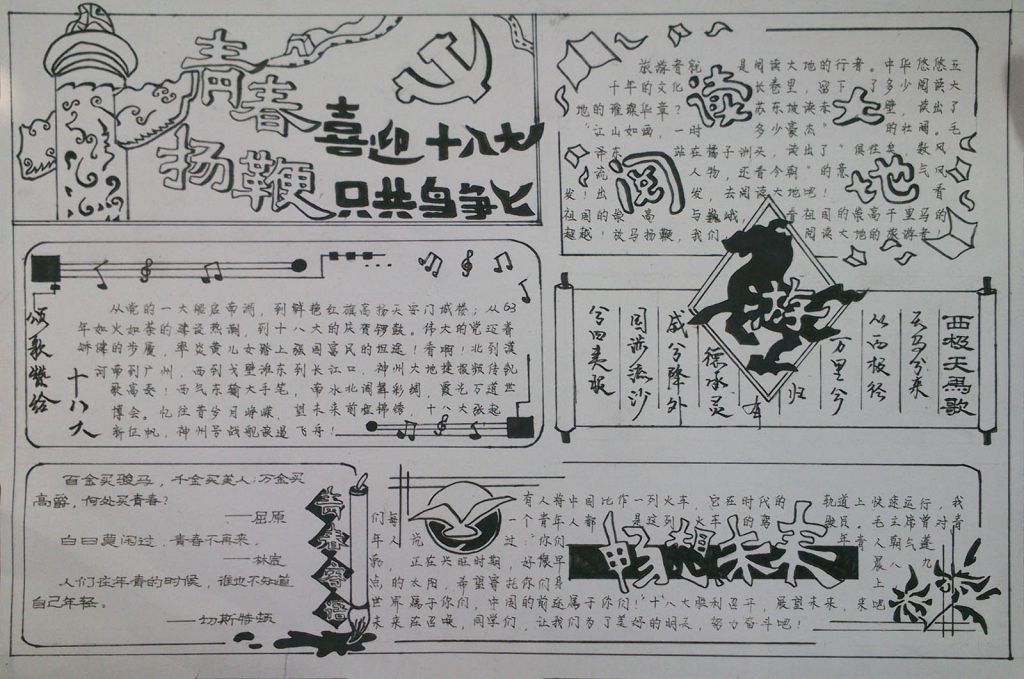 青春
扬鞭
喜迎十八大
只共鸟争飞
阅读大地
旅游者就是阅读大地的行者。中华悠悠五
千年的文化长卷里,留下了多少阅读大
地的璀璨华章?苏东坡读本壁,读出了
"江山如画,一时多少豪杰"的壮阔。毛
泽东站在橘子洲头,读出了
人物,还看今朝"的意气风
发!出发,去阅读大地吧!看
祖国的崇高与巍峨,看祖国的崇高千里马的
超越!放马扬鞭,我们阅读大地的旅游者!
颂歌赞给
十八大
从党的一大船启帝洲,到鲜艳红旗高扬天安门城楼;从63
年如火如荼的建设热潮,到十八大的庆贺锣鼓。伟大的党迈着
矫健的步履,率炎黄儿女踏上强国富民的坦途!看啊!北到漠
河南到广州,西到戈壁滩东到长江口,神州大地捷报频传乳
歌高奏!西气东输大手笔,南水北调舞彩绸,霞光万道世
博会。忆往昔岁月峥嵘,望未来前程锦绣,十八大张起
新征帆,神州号战舰浪遏飞舟!
游
西极天馬歌
天马兮来
从西极经
万里兮
归
有
德承灵
威兮降外
国涉流沙
兮四夷服
百金买骏马,千金买美人;万金买
高爵,何处买青春?
——屈原
白日莫闲过,青春不再来。
——林宽
人们在年青的时候,谁也不知道
自己年轻。
——切斯特顿
青春寄语
畅想未来
有人将中国比作一列火车,它在时代的轨道上快速运行,我
们每一个青年人都是这列火车的驾驶员。毛主席曾对青
年人说过"你们青年人朝气蓬
勃,正在兴旺时期,好像早晨八九
点的太阳,希望寄托你们身上
世界属于你们,中国的前途属于你们!"十八大胜利召开,展望未来,来吧
未来在召唤,同学们,让我们为了美好的明天,努力奋斗吧!